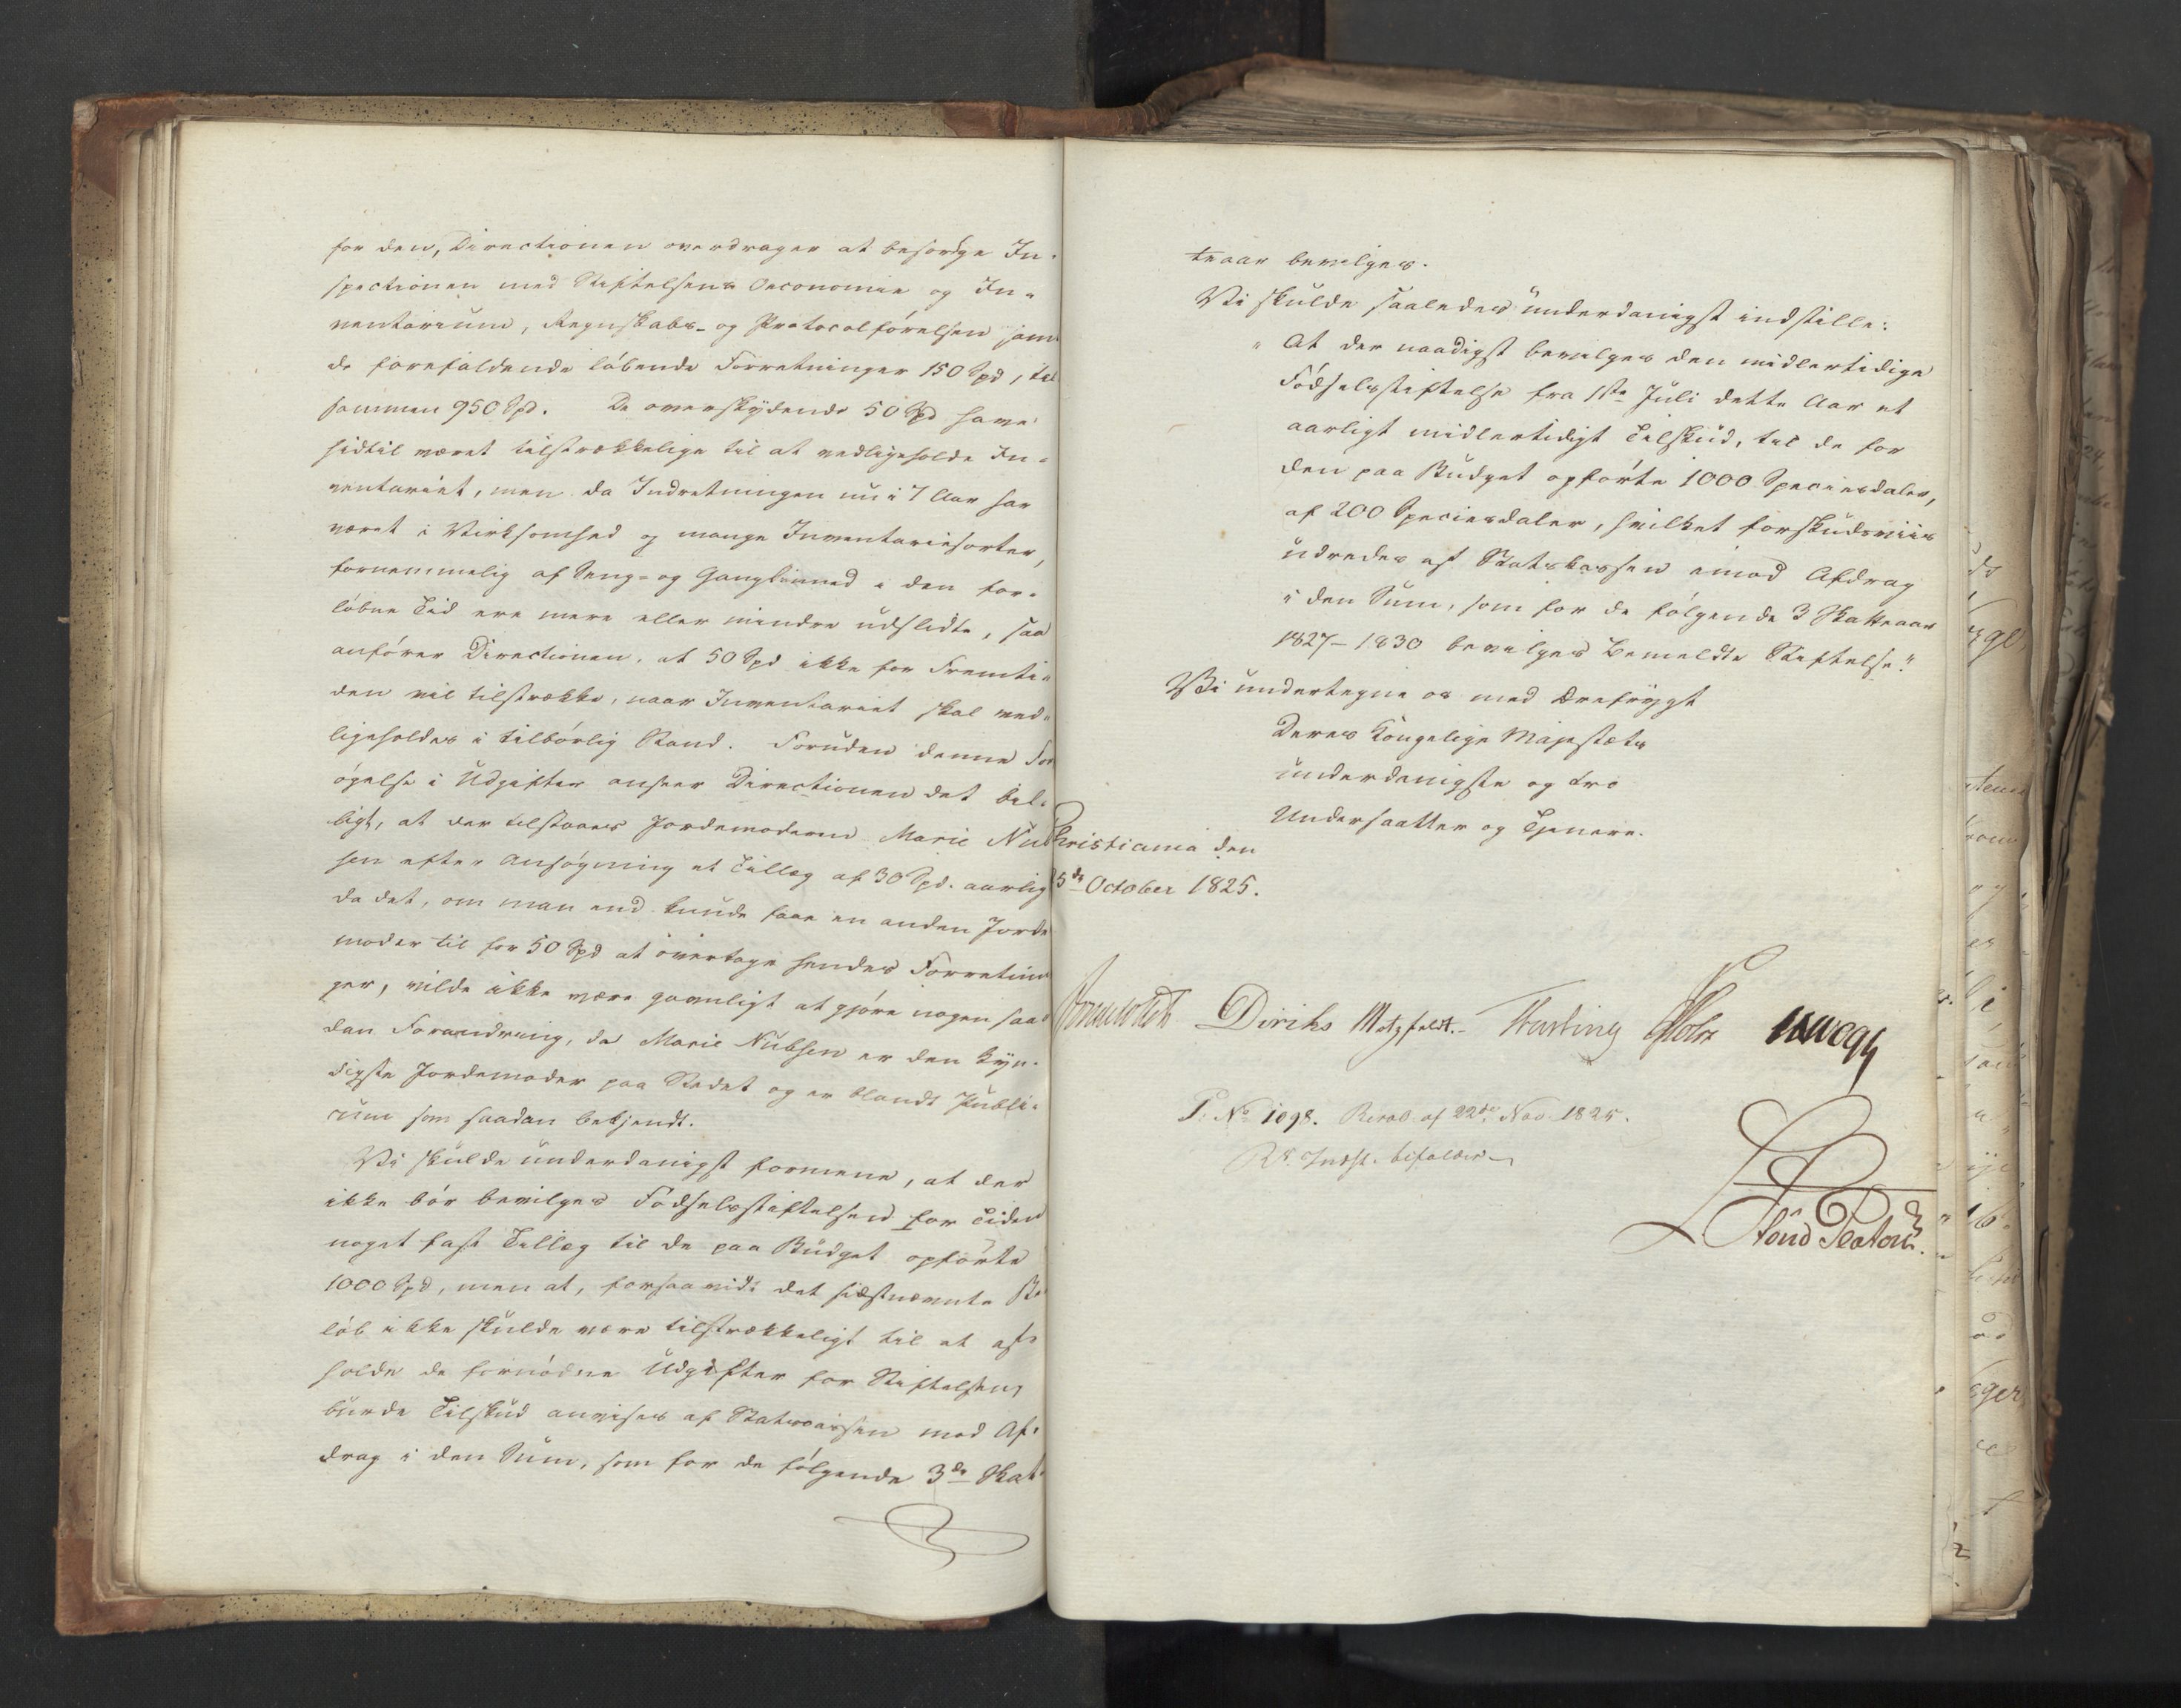 for den, Directionen overdrager at besørge In-
spectionen med Stiftelsens Oeconomie og In-
ventarium, Regnskabs- og Protocolførelsen samt
de forefaldende løbende Forretninger 150 Spd, til
sammen 950 Spd. De overskydende 50 Spd have
hidtil været tilstrækkelige til at vedligeholde In-
ventariet, men da Indretningen nu i 7 Aar har
været i Virksomhed og mange Inventariesorter,
fornemmelig af Seng- og Ganglinned i den for-
løbne Tid ere mere eller mindre udslidte, saa
anfører Directionen, at 50 Spd ikke for Fremti-
den vil tilstrække, naar Inventariet skal ved-
ligeholdes i tilbørlig Stand. Foruden denne For
øgelse i Udgifter anseer Directionen det bil-
ligt, at der tilstaaes Jordemoderen Marie Nub
sen efter Ansøgning et Tillæg af 30 Spd. aarlig
da det, om man end kunde faae en anden Jorde
moder til for 50 Spd at overtage hendes Forretnin
ger, vilde ikke være gavnligt at gjøre nogen saa-
dan Forandring, da Marie Nubsen er den kyn-
digste Jordemoder paa Stedet og er blandt Publi-
cum som saadan bekjendt.
Vi skulde underdanigst formene, at der
ikke bør bevilges Fødselsstiftelsen for Tiden
noget fast Tillæg til de paa Budget opførte
1000 Spd, men at, forsaavidt det sidstnævnte Be
løb ikke skulde være tilstrækkeligt til at af-
holde de fornødne Udgifter for Stiftelsen,
burde Tilskud anvises af Statscassen mod Af-
drag i den Sum, som for de følgende 3de Skat-
teaar bevilges.
Vi skulde saaledes underdanigst indstille:
"At der naadigst bevilges den midlertidige
Fødselsstiftelse fra 1ste Juli dette Aar et
aarligt midlertidigt Tilskud, til de for
den paa Budget opførte 1000 Speciesdaler,
af 200 Speciesdaler, hvilket forskudsviis
udredes af Statskassen imod Afdrag
i den Sum, som for de følgende 3 Skatteaar
1827-1830 bevilges bemeldte Stiftelse."
Vi undertegne os med Ærefrygt
Deres Kongelige Majestæts
underdanigste og tro
Undersaatter og Tjenere.
Christiania den
5de October 1825.
Diriks Motzfeldt. Fasting Holst
P. No 1098. Resol. af 22de Nov. 1825.
Indst. bifaldes